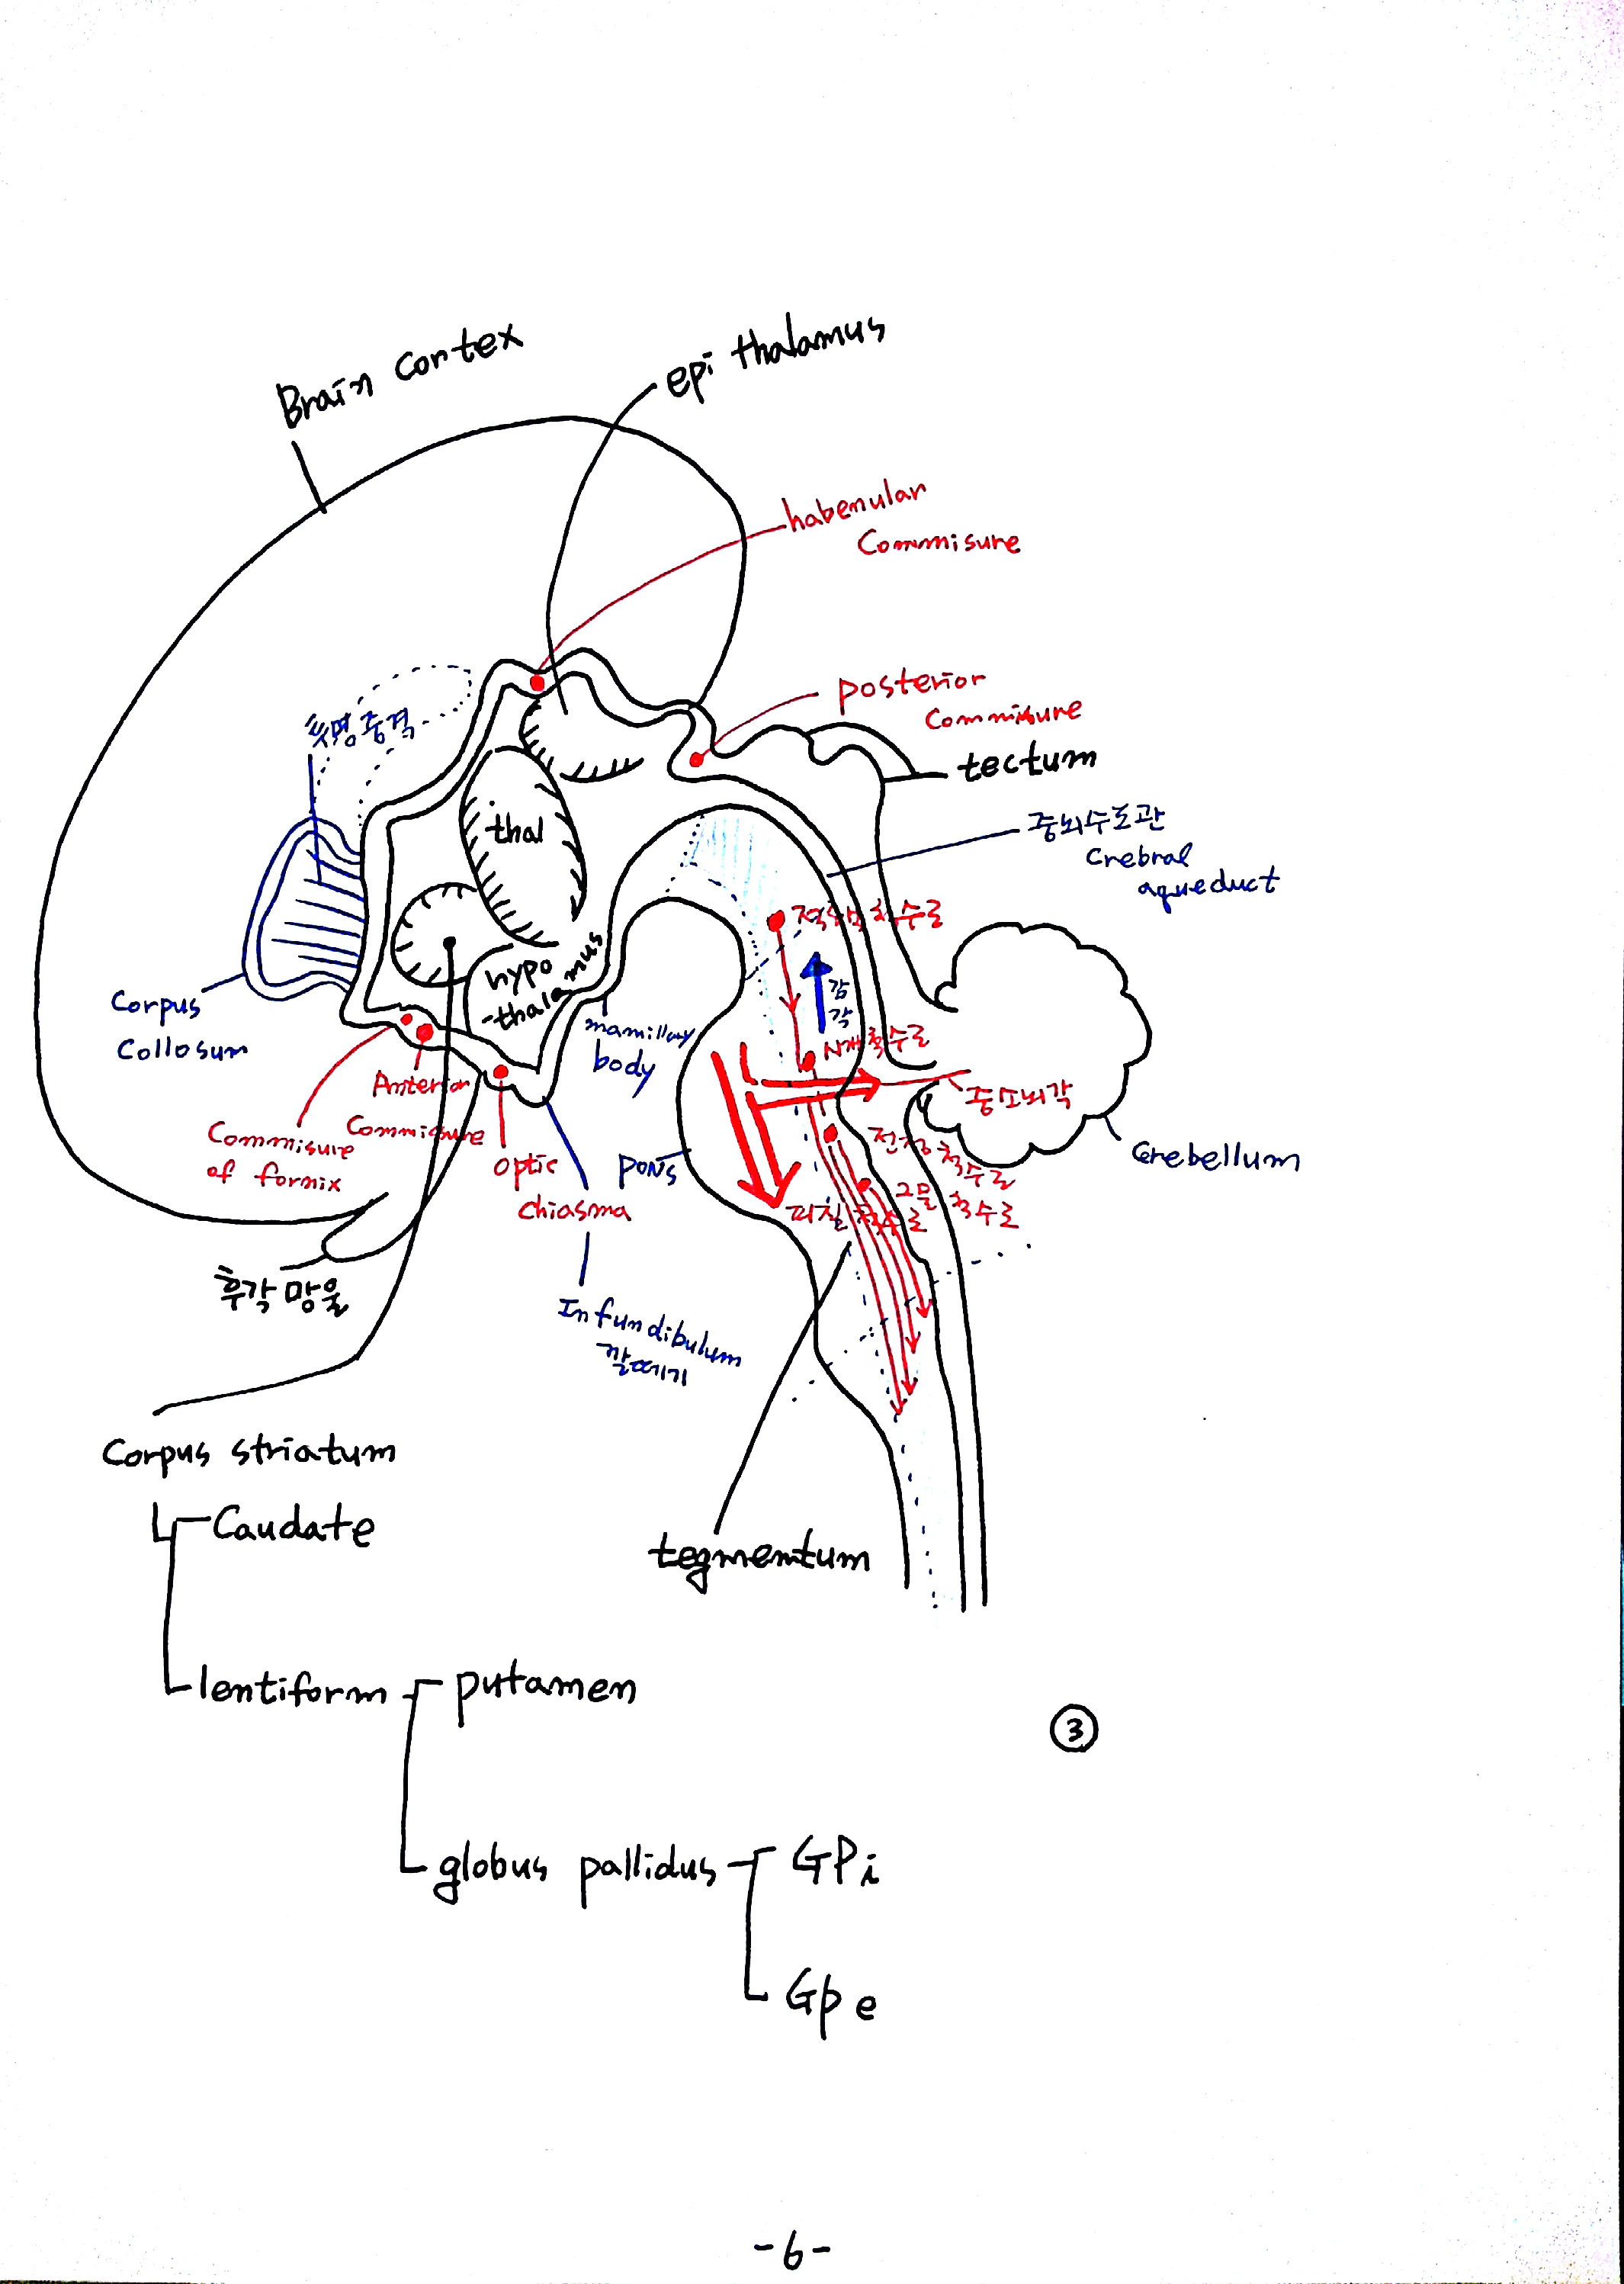 Brain cortex
epi thalamus
habenular
Commisure
posterior
Commisure
tectum
투명중격
중뇌수도관
Crebral
aqueduct
thal
hypo
-thalamus
적핵척수로
감각
시개척수로
중소뇌각
전정척수로
그물척수로
피질척수로
Cerebellum
Corpus
Collosum
mamillary
body
Anterior
Commisure
Commisure
of fornix
optic
chiasma
pons
후각망울
Infundibulum
깔때기
Corpus striatum
Caudate
tegmentum
lentiform
putamen
③
globus pallidus
GPi
Gpe
-6-